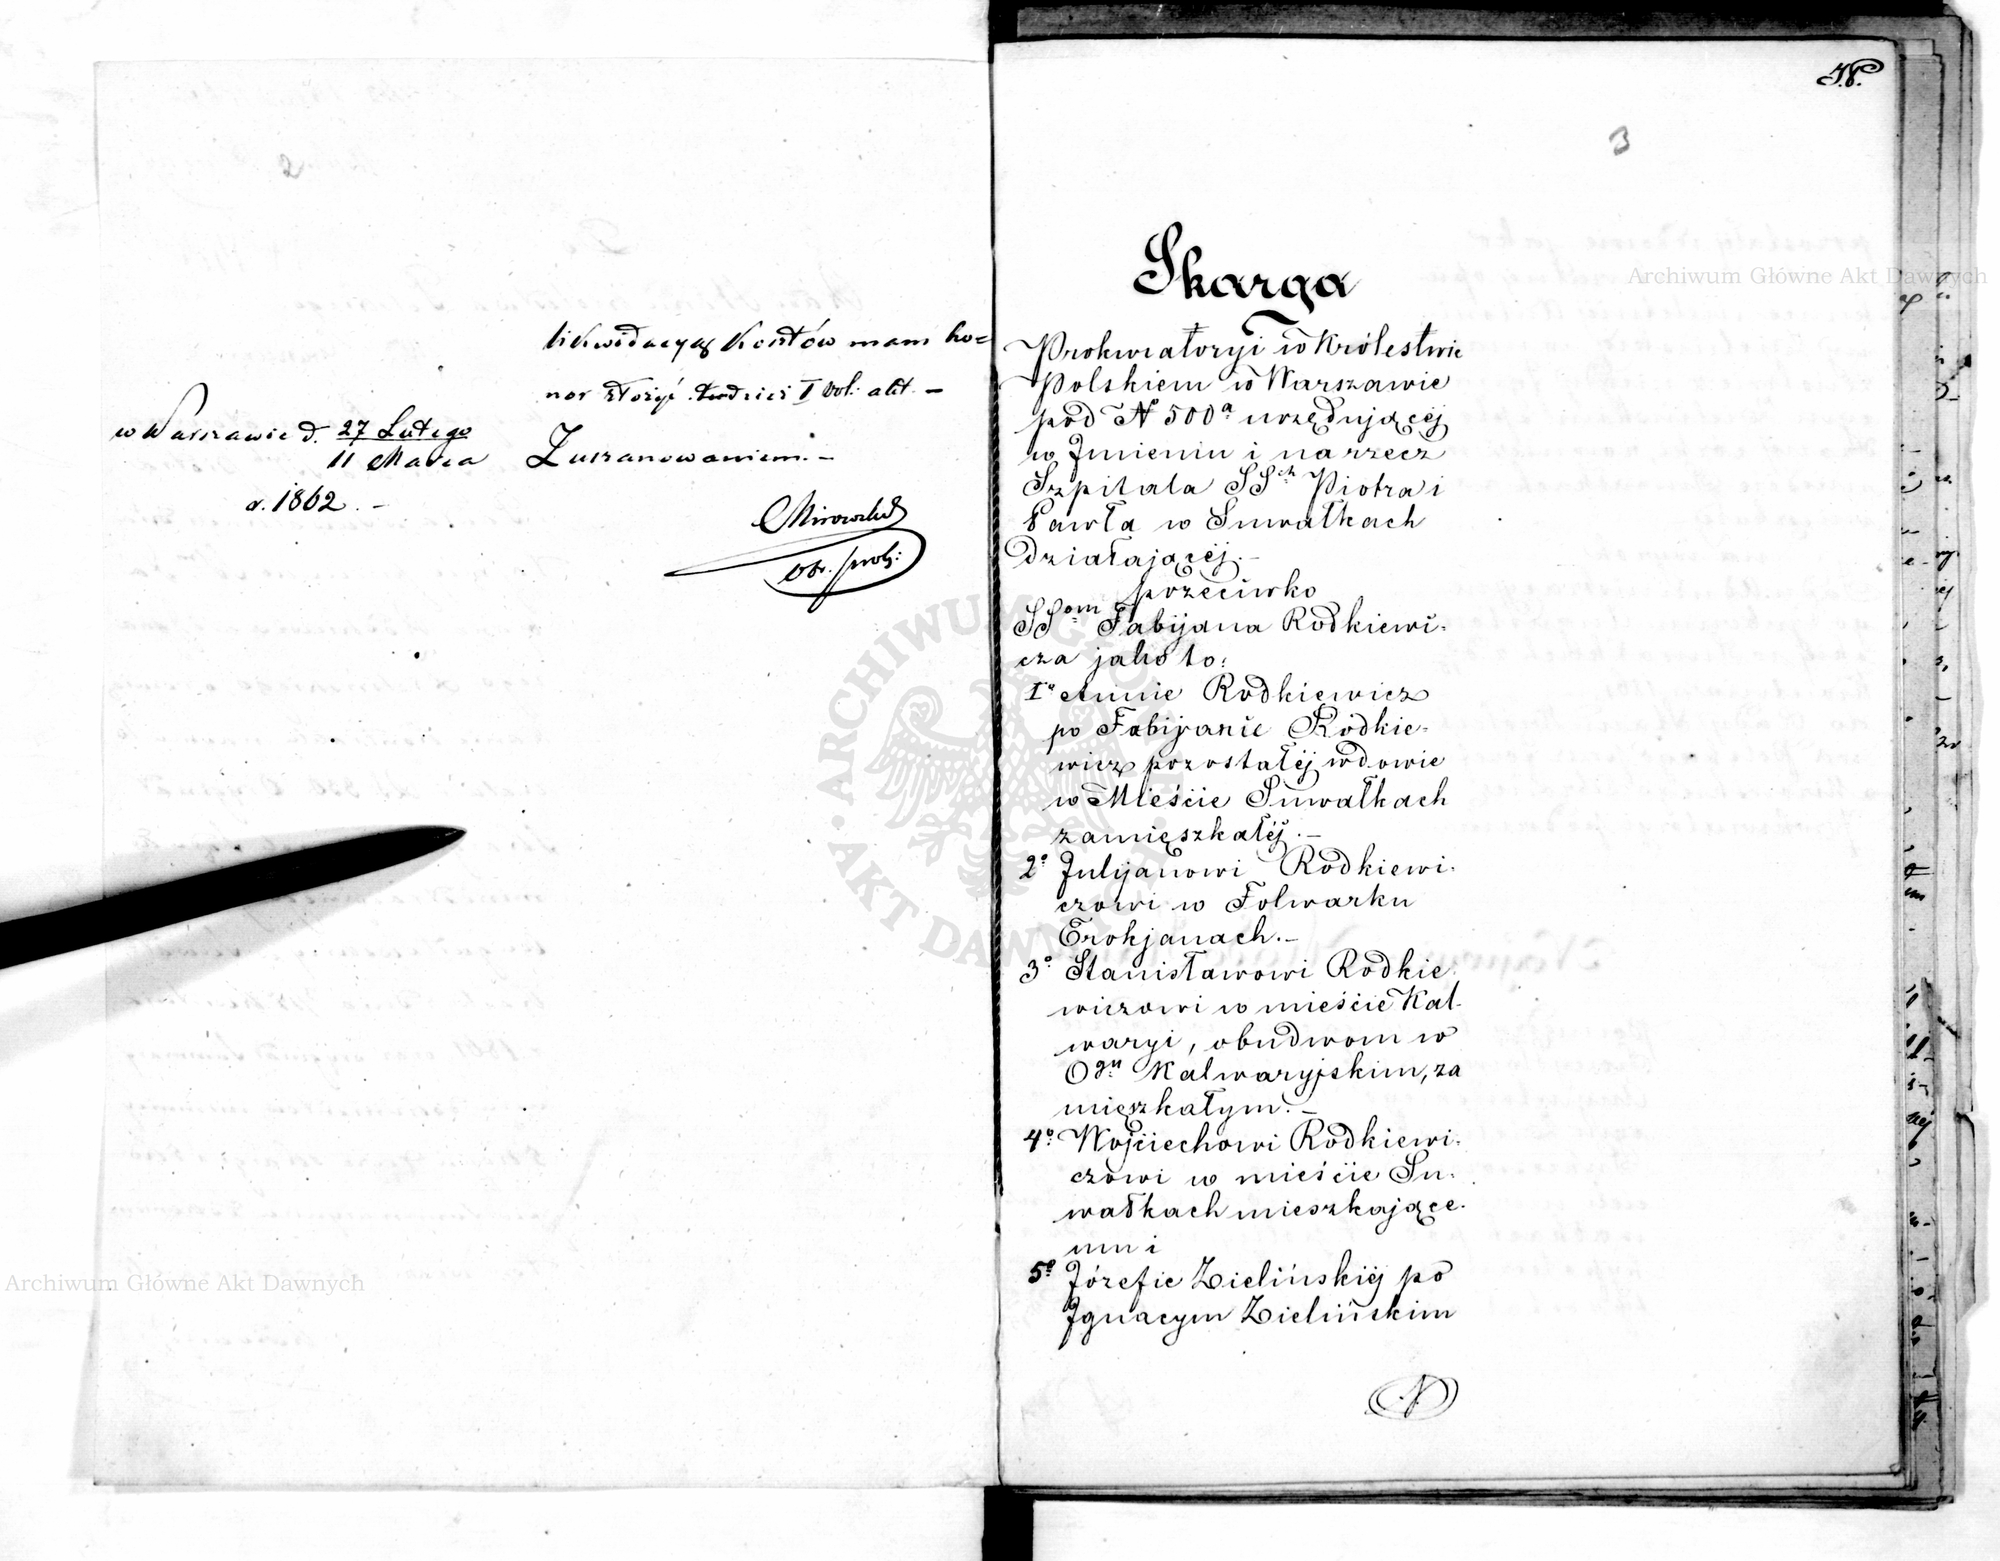 2
likwidacyą kosztów mam ho=
nor złożyć tudzież I vol: akt. –
w Warszawie d. 27 Lutego
11 Marca
r. 1862. –
Z uszanowaniem. –
Obr. prok:
3
Skarga
Prokuratoryi w Królestwie
Polskiem w Warszawie
pod N 500a urzędującéj
w Imieniu i na rzecz
Szpitala SSch Piotra i
Pawła w Suwałkach
działającéj. –
przeciwko
SSom Fabijana Rodkiewi-
cza jako to:
1o Annie Rodkiewicz
po Fabijanie Rodkie-
wicz pozostałéj wdowie
w Mieście Suwałkach
zamięszkałéj. –
2o Julijanowi Rodkiewi-
czowi w Folwarku
Trokjanach. –
3o Stanisławowi Rodkie-
wiczowi w mieście Kal-
waryi, obudwom w
Ogu Kalwaryjskim, za
mięszkałym. –
4o Wojciechowi Rodkiewi-
czowi w mieście Su-
wałkach mieszkające-
mu i
5o Józefie Zielińskiéj po
Ignacym Zielińskim
Archiwum Główne Akt Dawnych
Archiwum Główne Akt Dawnych
ARCHIWUM GŁÓWNE AKT DAWNYCH